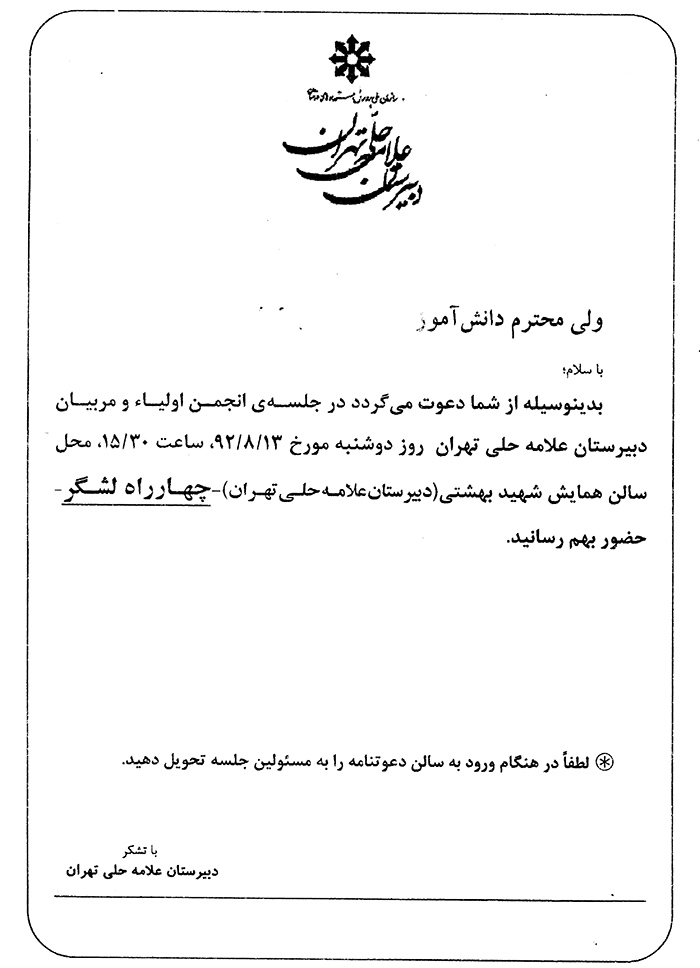 سازمان ملی پرورش استعدادهای درخشان
دبیرستان
علامه حلی
تهران
ولی محترم دانش آموز
با سلام؛
بدینوسیله از شما دعوت می‌گردد در جلسه‌ی انجمن اولیاء و مربیان
دبیرستان علامه حلی تهران روز دوشنبه مورخ ۹۲/۸/۱۳، ساعت ۱۵/۳۰، محل
سالن همایش شهید بهشتی(دبیرستان علامه حلی تهران)-چهارراه لشگر-
حضور بهم رسانید.
⊛ لطفاً در هنگام ورود به سالن دعوتنامه را به مسئولین جلسه تحویل دهید.
با تشکر
دبیرستان علامه حلی تهران